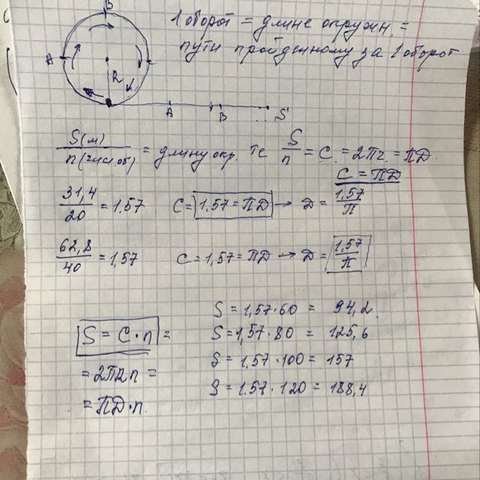 1 оборот = длине окружн. =
пути пройденному за 1 оборот
B
A
R
A B S
S(м) / n(числ.об) = длину окр. тс S/n = C = 2Пr = ПД
C = ПД
31,4/20 = 1.57 C = 1,57 = ПД → Д = 1,57/П
62,8/40 = 1,57 C = 1,57 = ПД → Д = 1,57/П
S = C·n =
= 2ПRn =
= ПД·n.
S = 1,57·60 = 94,2
S = 1,57·80 = 125,6
S = 1,57·100 = 157
S = 1.57·120 = 188,4